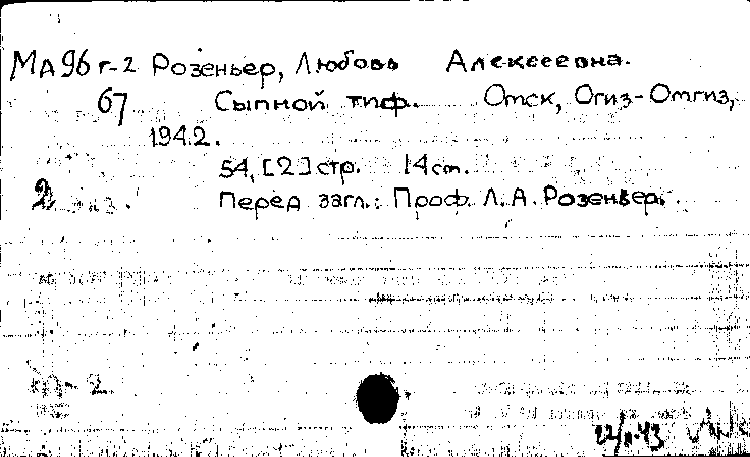 МА96г-2 Розеньер, Любовь Алексеевна.
67 Сыпной тиф. Омск, Огиз-Омгиз,
1942.
54, [2] стр. 14 cm.
2 экз. Перед загл.: Проф. Л. А. Розеньер.